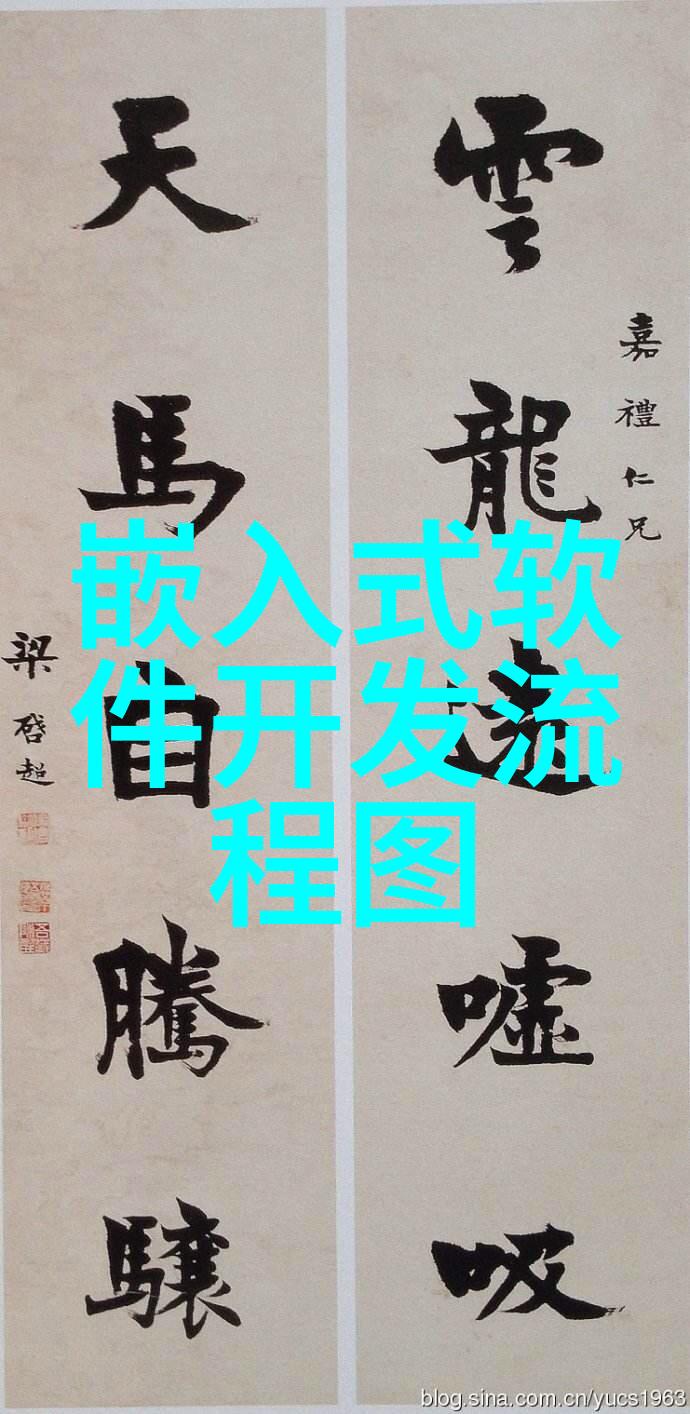 嘉禮仁兄
雲龍遠噓吸
天馬自騰驤
梁啓超
嵌入式软
件开发流
程图
blog.sina.com.cn/yucs1963